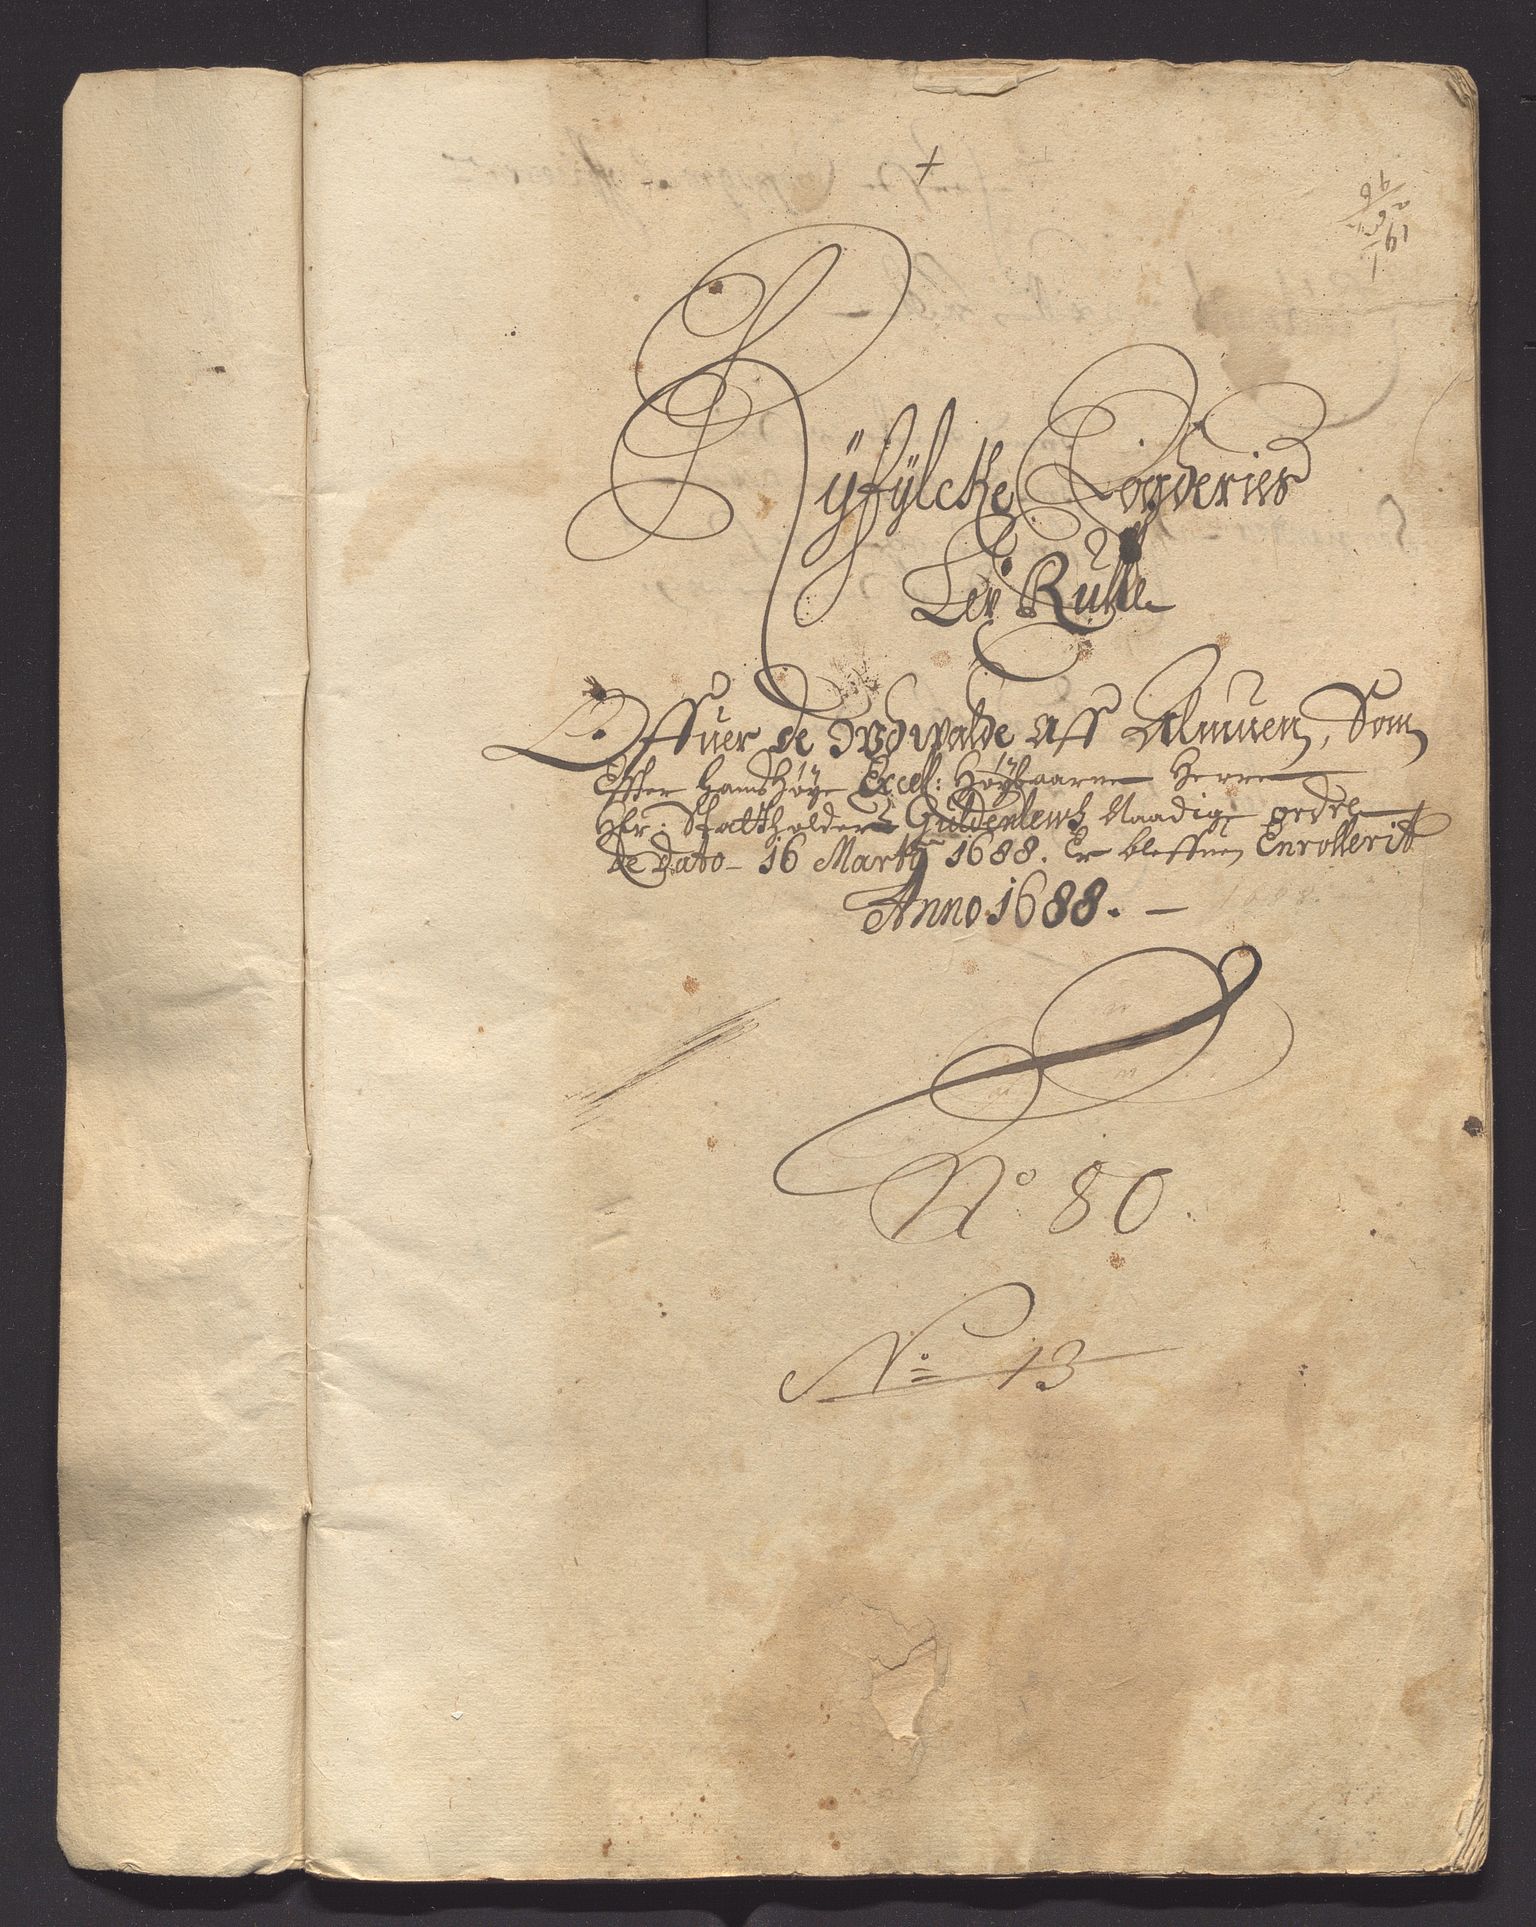 +
Ryfylcke Fogderies
Rulle
Offuer de Udvalde aff Almuen, Som
Effter Hans Høye Excell: Høybaarne Herre
Hr. Statholder Guldenlews Naadige ordre
de Dato - 16 Marty 1688. Er bleffuen Enrollerit
Anno 1688. -
No 80.
No 13